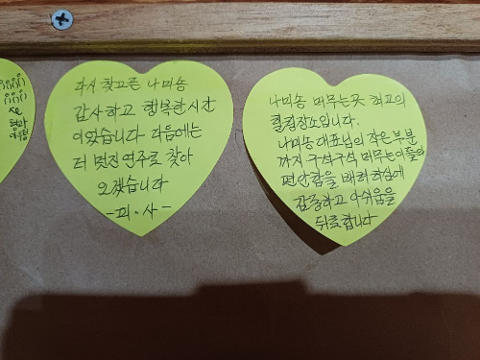 다시 찾고픈 나미송
감사하고 행복한 시간
이었습니다 다음에는
더 멋진 연주로 찾아
오겠습니다
나미송 머무는 곳 최고의
힐링장소입니다.
나미송 대표님의 작은부분
까지 구석구석 머무는이들의
편안함을 배려하심에
감동하고 아쉬움을
뒤로합니다